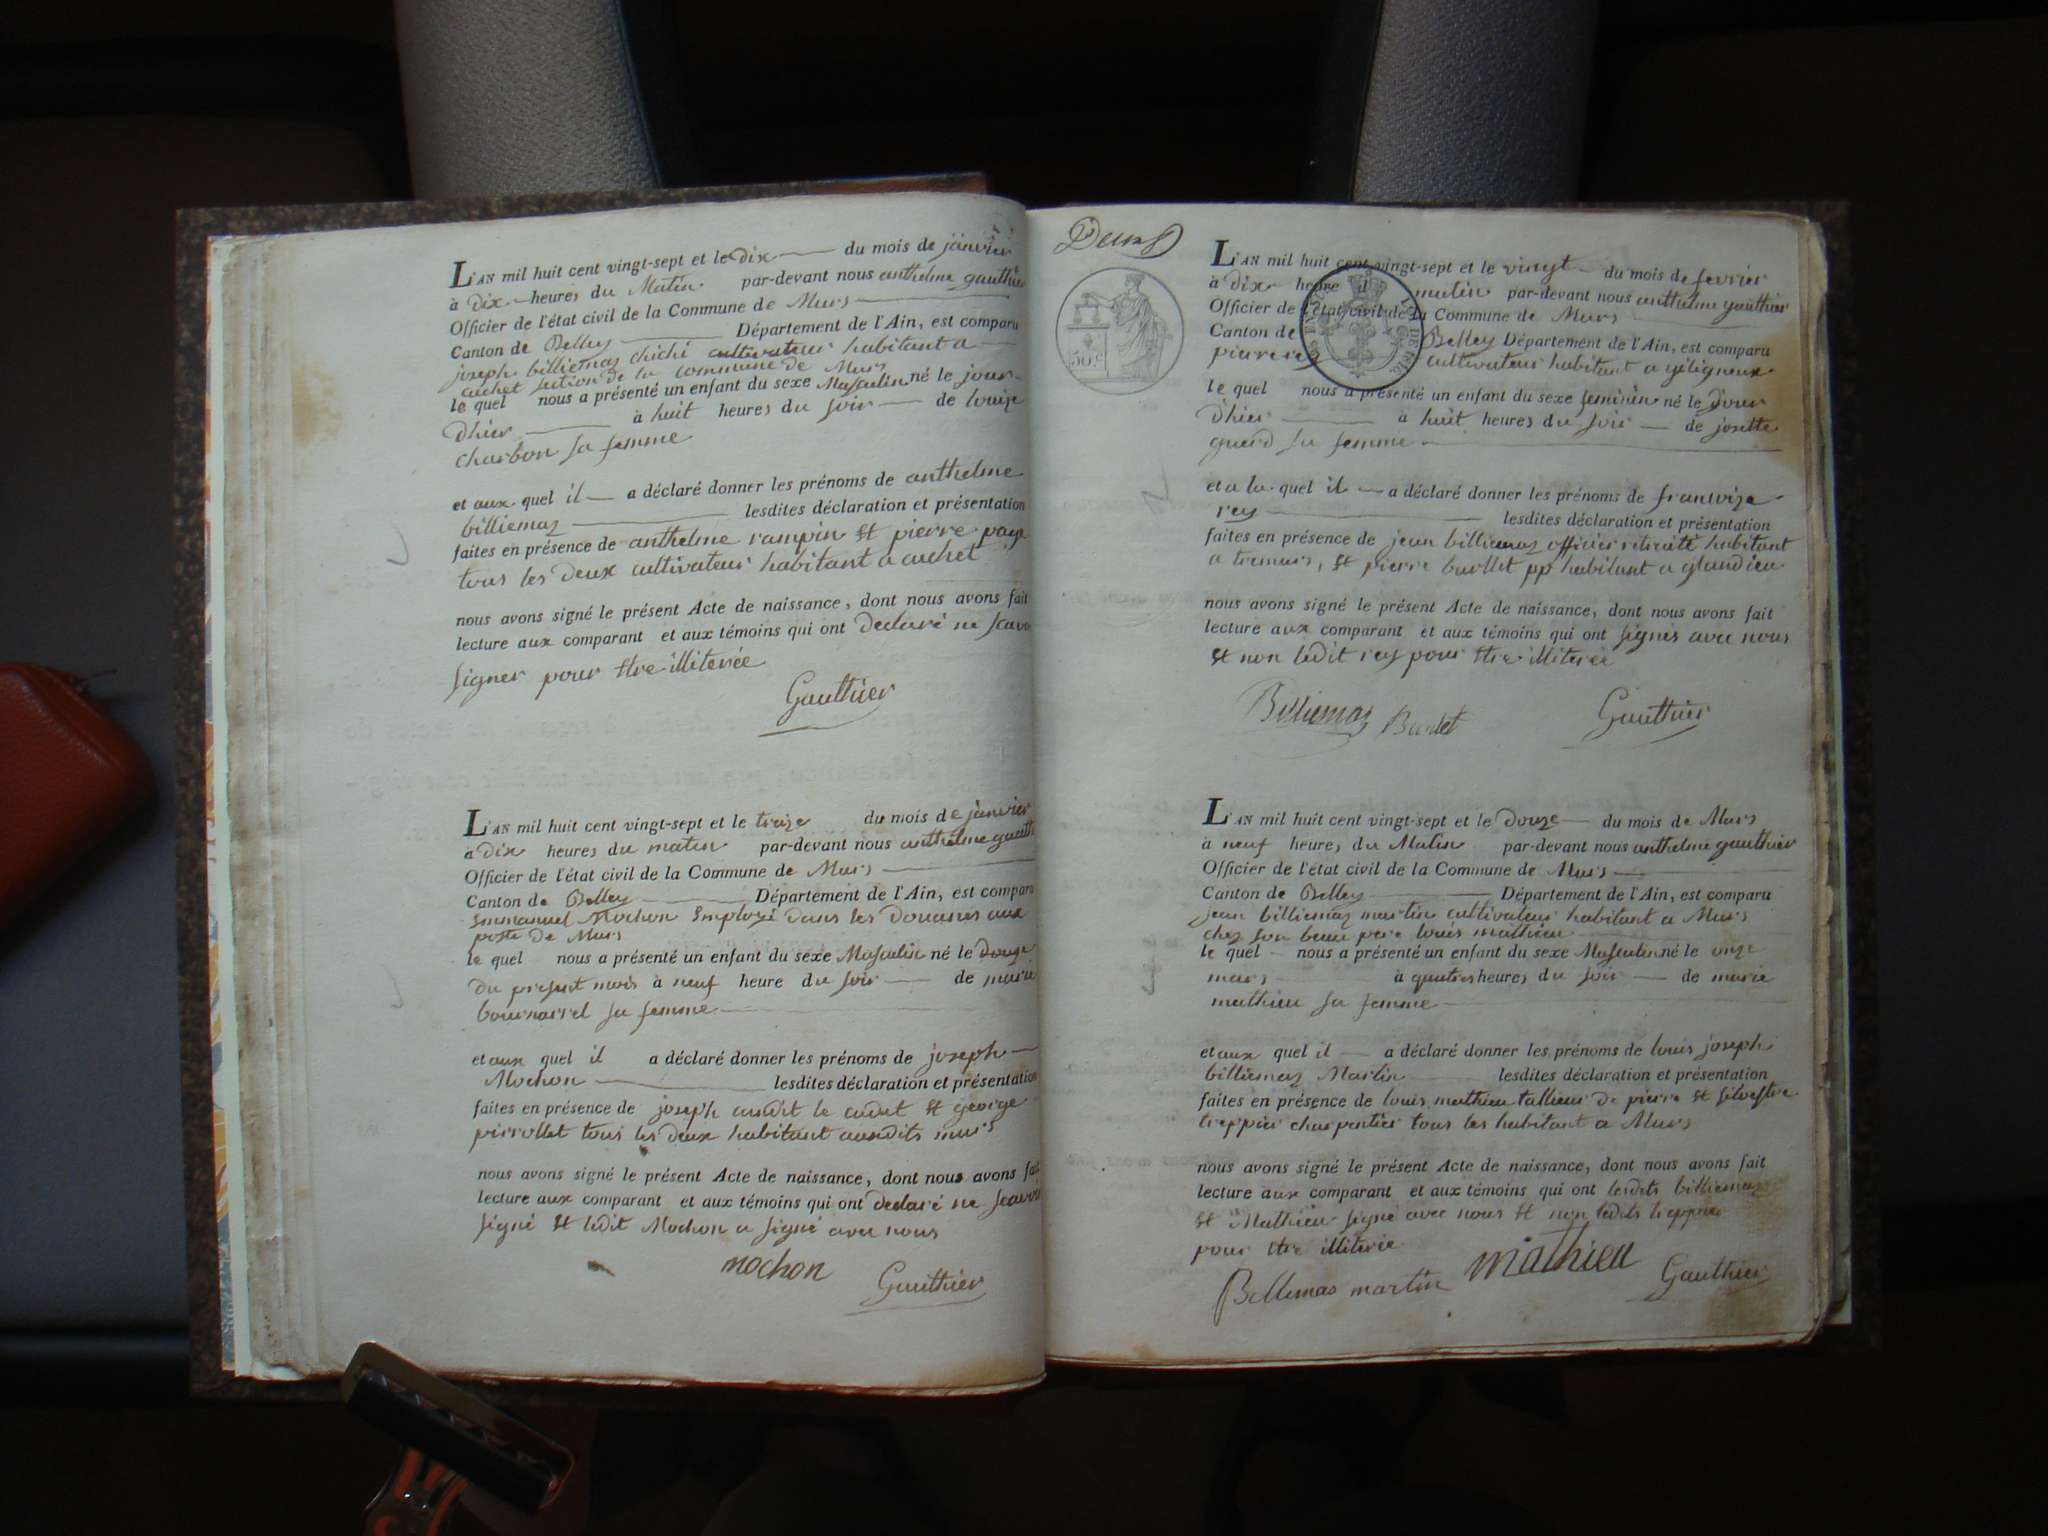 L'AN mil huit cent vingt-sept et le dix du mois de janvier
à dix heures du Matin par-devant nous anthelme gauthier
Officier de l'état civil de la Commune de Murs
Canton de Belley Département de l'Ain, est comparu
joseph billiemaz chichi cultivateur habitant a
cuchet section de la commune de Murs
le quel nous a présenté un enfant du sexe Masculin né le jour
dhier à huit heures du soir de louize
charbon sa femme
et aux quel il a déclaré donner les prénoms de anthelme
billiemaz lesdites déclaration et présentation
faites en présence de anthelme rampin et pierre page
tous les deux cultivateur habitant a cuchet
nous avons signé le présent Acte de naissance, dont nous avons fait
lecture aux comparant et aux témoins qui ont declaré ne scavoir
signer pour etre illiterée
Gauthier
L'AN mil huit cent vingt-sept et le treize du mois de janvier
à dix heures du matin par-devant nous anthelme gauthier
Officier de l'état civil de la Commune de Murs
Canton de Belley Département de l'Ain, est comparu
Emmanuel Mochon Employé dans les douanes aux
poste de Murs
le quel nous a présenté un enfant du sexe Masculin né le douze
du présent mois à neuf heure du soir de marie
bournarrel sa femme
et aux quel il a déclaré donner les prénoms de joseph
Mochon lesdites déclaration et présentation
faites en présence de joseph le cadet et george
pirrollet tous les deux habitant auxdits murs
nous avons signé le présent Acte de naissance, dont nous avons fait
lecture aux comparant et aux témoins qui ont declaré ne scavoir
signé et ledit Mochon a signé avec nous
mochon Gauthier
Deux
50 c
L'AN mil huit cent vingt-sept et le vingt du mois de fevrier
à dix heure d matin par-devant nous anthelme gauthier
Officier de l'état civil de la Commune de Murs
Canton de Belley Département de l'Ain, est comparu
pierre rey cultivateur habitant a géligneux
le quel nous a présenté un enfant du sexe feminin né le jour
dhier à huit heures du soir de josette
sa femme
et a la quel il a déclaré donner les prénoms de francoize
rey lesdites déclaration et présentation
faites en présence de jean billiemaz officier retraité habitant
a tremurs, et pierre burllet pp habitant a glandieu
nous avons signé le présent Acte de naissance, dont nous avons fait
lecture aux comparant et aux témoins qui ont signés avec nous
et non ledit rey pour etre illiterée
Billiemaz Burlet Gauthier
L'AN mil huit cent vingt-sept et le douze du mois de Mars
à neuf heures du Matin par-devant nous anthelme gauthier
Officier de l'état civil de la Commune de Murs
Canton de Belley Département de l'Ain, est comparu
jean billiemaz martin cultivateur habitant a Murs
chez son beau pere louis mathieu
le quel nous a présenté un enfant du sexe Masculin né le onze
mars à quatres heures du soir de marie
mathieu sa femme
et aux quel il a déclaré donner les prénoms de louis joseph
billiemaz Martin lesdites déclaration et présentation
faites en présence de louis mathieu tallieur de pierre et silvestre
treppier charpentier tous les habitant a Murs
nous avons signé le présent Acte de naissance, dont nous avons fait
lecture aux comparant et aux témoins qui ont lesdits billiemaz
et Mathieu signé avec nous et non ledits treppier
pour etre illiterée
Billiemas martin mathieu Gauthier